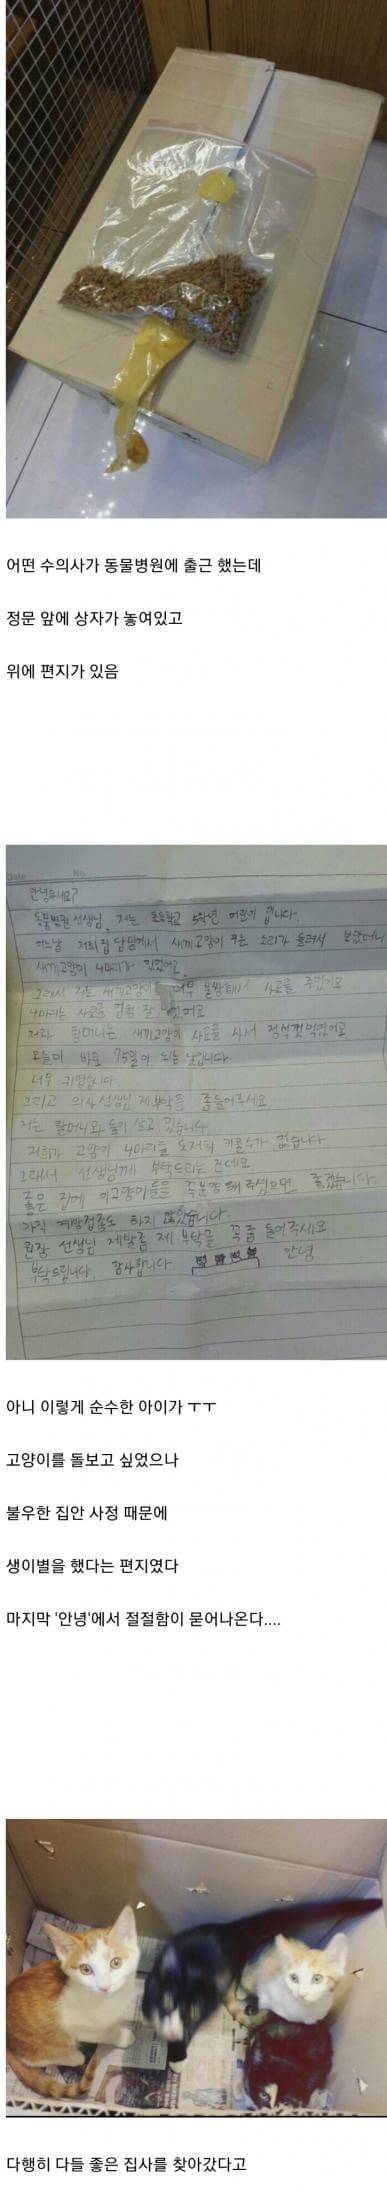 어떤 수의사가 동물병원에 출근 했는데
정문 앞에 상자가 놓여있고
위에 편지가 있음
Date No.
안녕하세요?
동물병원 선생님, 저는 초등학교 5학년 어린이 입니다.
어느날 저희집 담밑에서 새끼고양이 우는 소리가 들려서 보았더니
새끼고양이 4마리가 있었어요.
그래서 저는 새끼고양이 너무 불쌍해서 사료를 주었어요
4마리는 사료를 엄청 잘 먹었어요
저와 할머니는 새끼고양이 사료를 사서 정성껏 먹였어요
오늘이 바로 75일이 되는 날입니다
너무 귀엽습니다.
그리고 의사선생님 제부탁을 좀들어주세요
저는 할머니와 둘이 살고 있습니다
저희가 고양이 4마리를 도저히 키울수가 없습니다
그래서 선생님께 부탁드리는 건데요.
좋은 집에 이고양이들을 꼭분양 해 주셨으면 좋겠습니다.
아직 예방접종도 하지 않았습니다.
원장 선생님 제발좀 제 부탁을 꼭좀 들어주세요
부탁드립니다. 감사합니다 안녕
아니 이렇게 순수한 아이가 ㅜㅜ
고양이를 돌보고 싶었으나
불우한 집안 사정 때문에
생이별을 했다는 편지였다
마지막 '안녕'에서 절절함이 묻어나온다....
다행히 다들 좋은 집사를 찾아갔다고